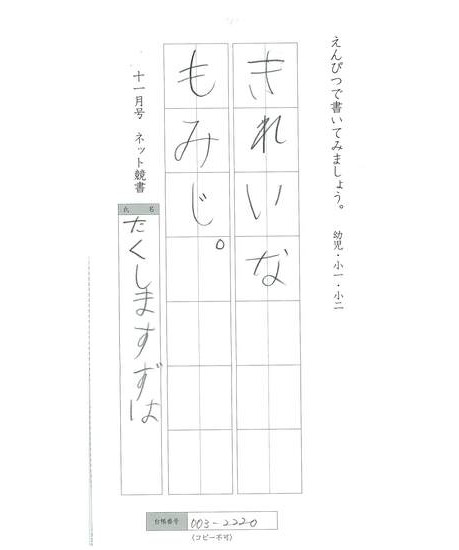 えんぴつで書いてみましょう。 幼児・小一・小二
きれいな
もみじ。
十一月号 ネット競書
氏名
たくしますずは
台帳番号 003-2220
(コピー不可)